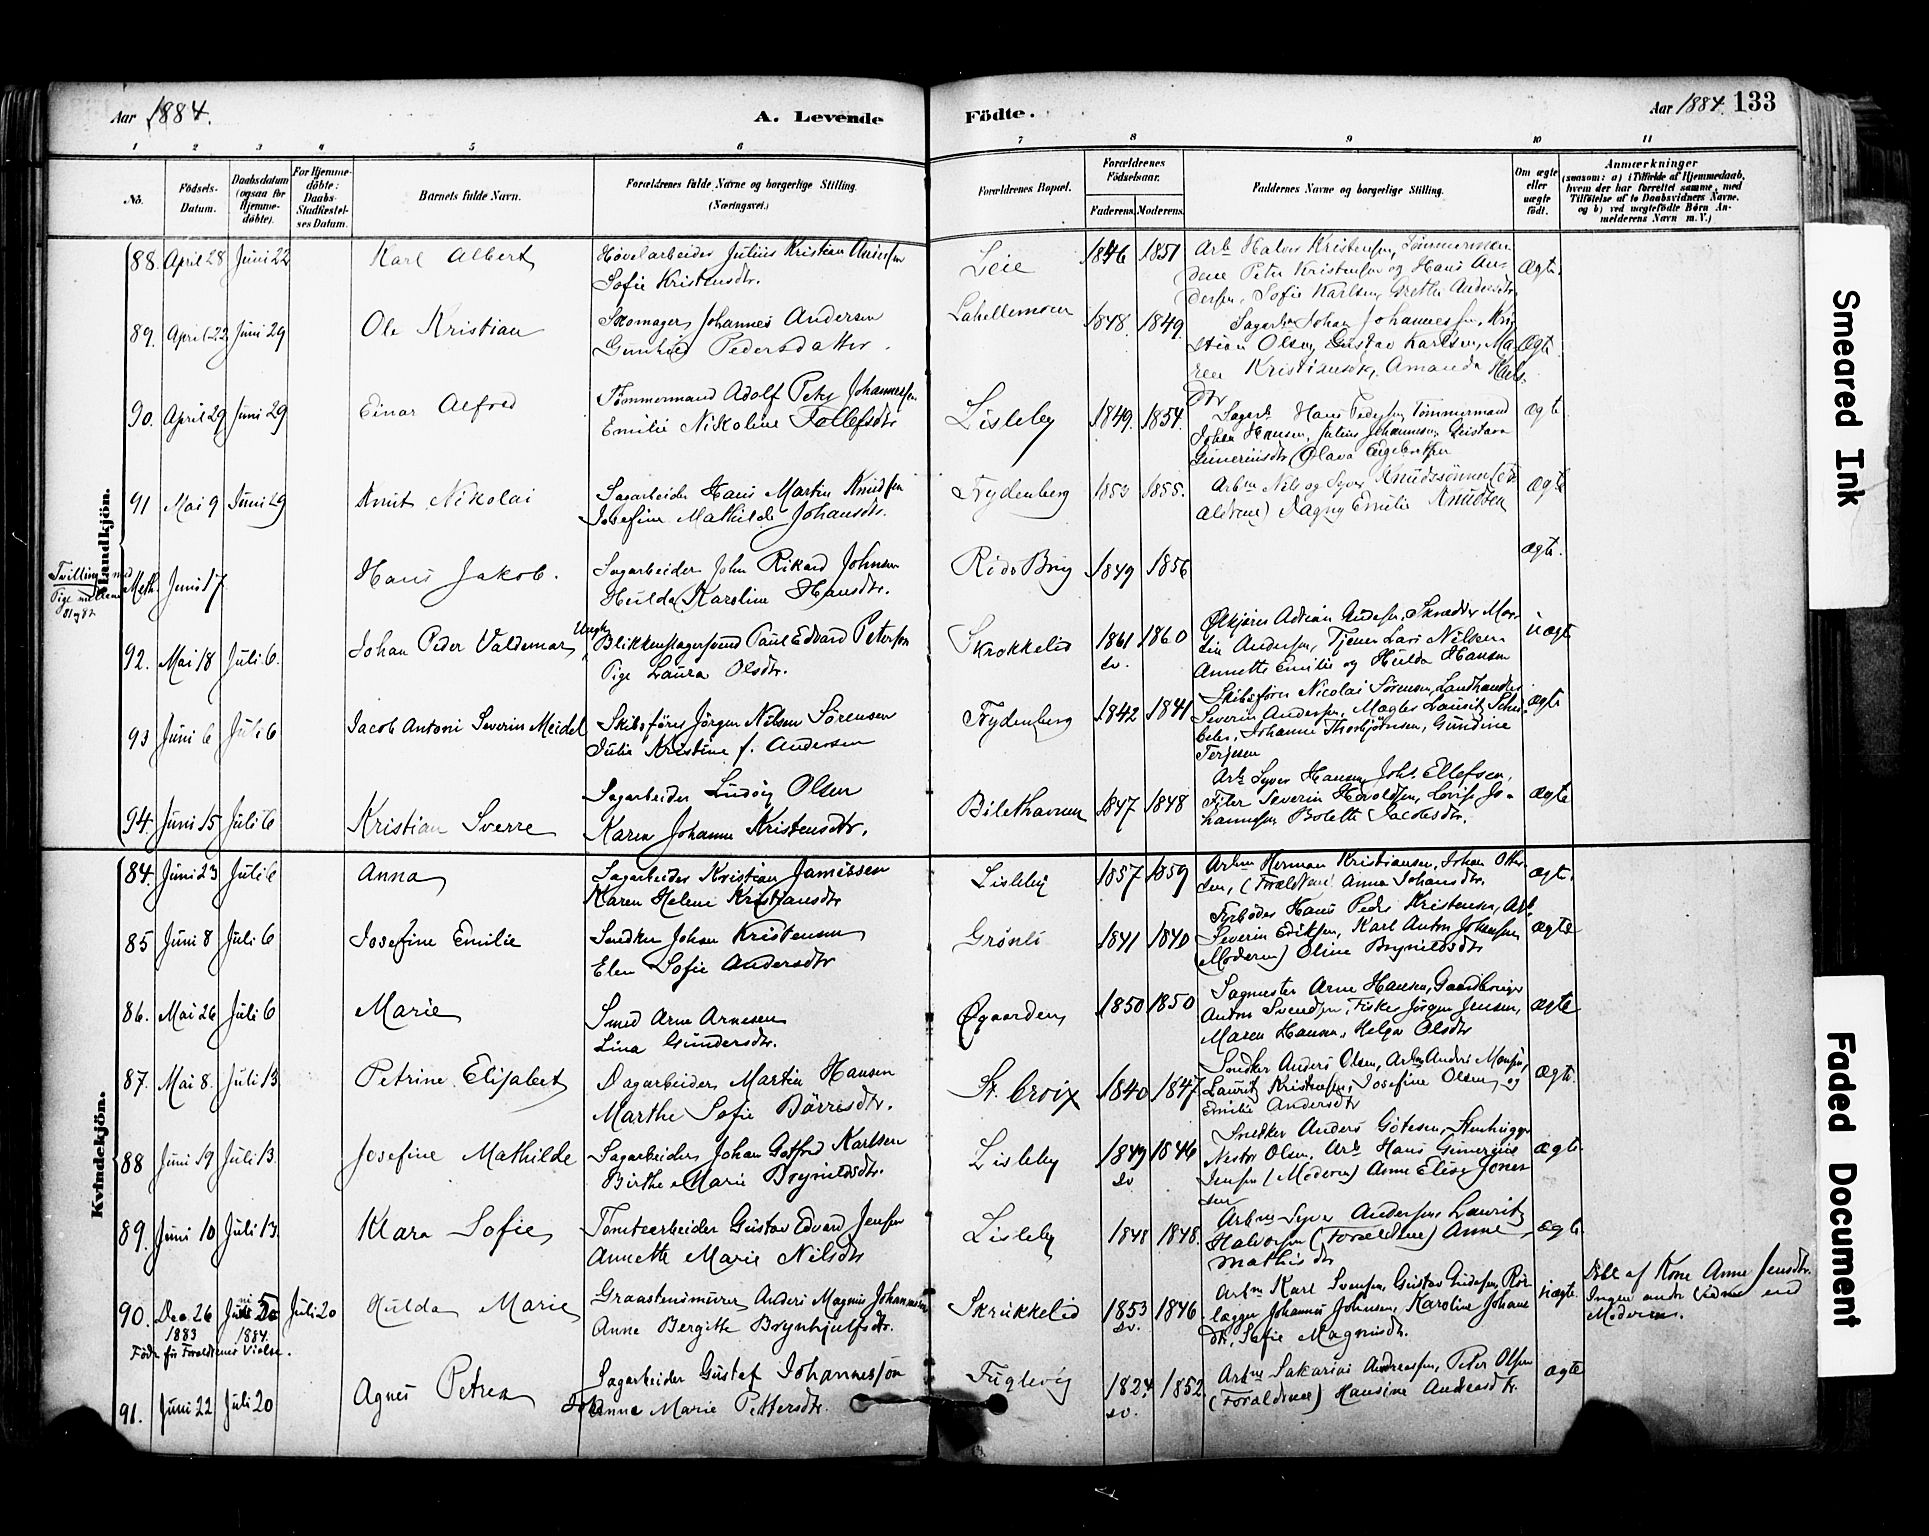 Aar 1884.
A. Levende
Fødte.
Aar 1884. 133
1 2 3 4 5 6 7 8 9 10 11
No.
Fødsels-Datum.
Daabsdatum (ogsaa for Hjemmedøbte).
For Hjemmedøbte: Daabs-Stadfestelses Datum.
Barnets fulde Navn.
Forældrenes fulde Navne og borgerlige Stilling.
(Næringsvei.)
Forældrenes Bopæl.
Forældrenes Fødselsaar.
Faderens. Moderens.
Faddernes Navne og borgerlige Stilling.
Om ægte eller uægte født.
Anmærkninger
(saasom: a) i Tilfælde af Hjemmedaab, hvem der har forrettet samme, med Tilføielse af to Daabsvidners Navne, og b) ved uægtefødte Børn Anmelderens Navn m. V.)
Mandkjøn.
88. April 28 Juni 22 Karl Albert
Høvelarbeider Julius Kristian Andersen
Sofie Kristensdtr.
Leie 1846 1851
Arb. Halvor Kristensen, Tømmermændene Peter Kristensen og Hans Andersen, Sofie Karlsen, Grethe Andersdtr
Ægte.
89. April 22 Juni 29 Ole Kristian
Skomager Johannes Andersen
Gunhild Pedersdatter.
Lahellemoen 1848. 1849.
Sagarb. Johan Johannessen, Kristian Olsen, Gustav Karlsen, Maren Kristiansdtr, Amanda Karlsdtr
Ægte
90. April 29 Juni 29 Einar Alfred
Tømmermand Adolf Peter Johannessen
Emilie Nikoline Tollefsdtr
Lisleby 1849. 1854.
Sagarb. Hans Pedersen, Tømmermand Johan Hansen, Julius Johannesen, Gustava Guneriusdtr, Olava Engebretsen
ægte
91 Mai 9 Juni 29 Knut Nikolai
Sagarbeider Hans Martin Knudsen
Josefine Mathilde Johansdtr.
Trydenberg 1853 1855.
Arbm Nils og Syver Knudssønner Forældrene) Dagny Emilie Knudsen
Ægte
Tvilling med
Pige mellem
81 og 82
Juni 17 Hans Jakob.
Sagarbeider John Rikard Johnsen
Hulda Karoline Hansdtr.
Røds Brug 1849 1856
ægte.
92. Mai 18 Juli 6. Johan Peder Valdemar
Ungk. Blikkenslagersvend Paul Edvard Petersen
Pige Laura Olsdtr.
Skrokkelid 1861 sv. 1860
Adrian Andersen, Skrædder Martin Andersen, Tjener Lars Nilsen Annette Emilie og Hulda Hansen
uægte
93 Juni 6 Juli 6 Jacob Antoni Severin Meidel
Skibsfører Jørgen Nilsen Sørensen
Julie Kristine f. Andersen
Trydenberg 1842 1841
Skibsfører Nicolai Sørensen, Landhandler Severin Andersen, Mægler Lauritz Johanne Thorbjørnsen, Gundine Terjesen
ægte
94. Juni 15 Juli 6 Kristian Sverre
Sagarbeider Ludvig Olsen
Karen Johanne Kristensdtr.
Bilethavnen 1847 1848
Arb. Syver Hansen, Johs. Ellefsen, Filer Severin Haroldsen, Lovise Johannesen Bolette Jacobsdtr.
ægte
Kvindekjøn.
84. Juni 23 Juli 6 Anna
Sagarbeider Kristian Jamissen
Karen Helene Kristiansdtr
Lisleby 1857 1859
Arbm Herman Kristiansen, Johan Ottersen, (Forældrene) Anna Johansdtr.
ægte.
85 Juni 8 Juli 6 Josefine Emilie
Snedker Johan Kristensen
Elen Sofie Andersdtr
Grønli 1841 1840
Fyrbøder Hans Peder Kristensen, Arb. Severin Eriksen, Karl Anton Johansen (Moderen) Oline Brynildsdtr
ægte
86. Mai 26 Juli 6 Marie
Smed Arne Arnesen
Lina Gundersdtr.
Øgaarden 1850 1850
Sagmester Arne Hansen, Gaardbruger Anton Svendsen, Fisker Jørgen Jensen, Maren Hansen, Helga Olsdtr
ægte
87. Mai 8. Juli 13 Petrine Elisabet
Dagarbeider Martin Hansen
Marthe Sofie Börresdtr.
St. Croix 1840 1847
Snedker Anders Olsen, Arbm Anders Monsen, Lauritz Kristensen, Josefine Olsen, og Emilie Andersdtr
Ægte.
88 Juni 19 Juli 13. Josefine Mathilde
Sagarbeider Johan Gotfred Karlsen
Birthe Marie Brynildsdtr.
Lisleby 1849 sv 1846
Snedker Anders Götesen, Stenhugger Nestor Olsen, Arb. Hans Gunerius Jensen (Moderen) Anne Elise Jonessen
ægte
89. Juni 10 Juli 13. Klara Sofie
Tomtearbeider Gustav Edvard Jensen
Annette Marie Nilsdtr
Lisleby 1848 1848.
Arbm Syver Andersen, Lauritz Halvorsen (Forældrene) Anne Mathisdtr
ægte
90. Dec. 26 1883 Juni 20 1884. Juli 20 Hulda Marie
Født før Forældrenes Vielse.
Graastensmurer Anders Magnus Johannesen
Anne Bergitte Brynhjulfsdtr.
Skrukkelid 1853 sv. 1846
Arbm Karl Svensen, Gustav Andersen, Rørlægger Johannes Johnsen, Karoline Johansdtr, Sofie Magnusdtr.
uægte.
Døbt af Kone Anne Jensdtr. Ingen andre Vidne end Moderen.
91. Juni 22 Juli 20 Agnes Petrea
Sagarbeider Gustaf Johannesson
Anne Marie Pettersdtr.
Fuglevig 1824 sv. 1852
Arbm Sakarias Andreassen, Peter Olsen (Forældrene) Hansine Andersdtr.
ægte
Smeared Ink
Faded Document